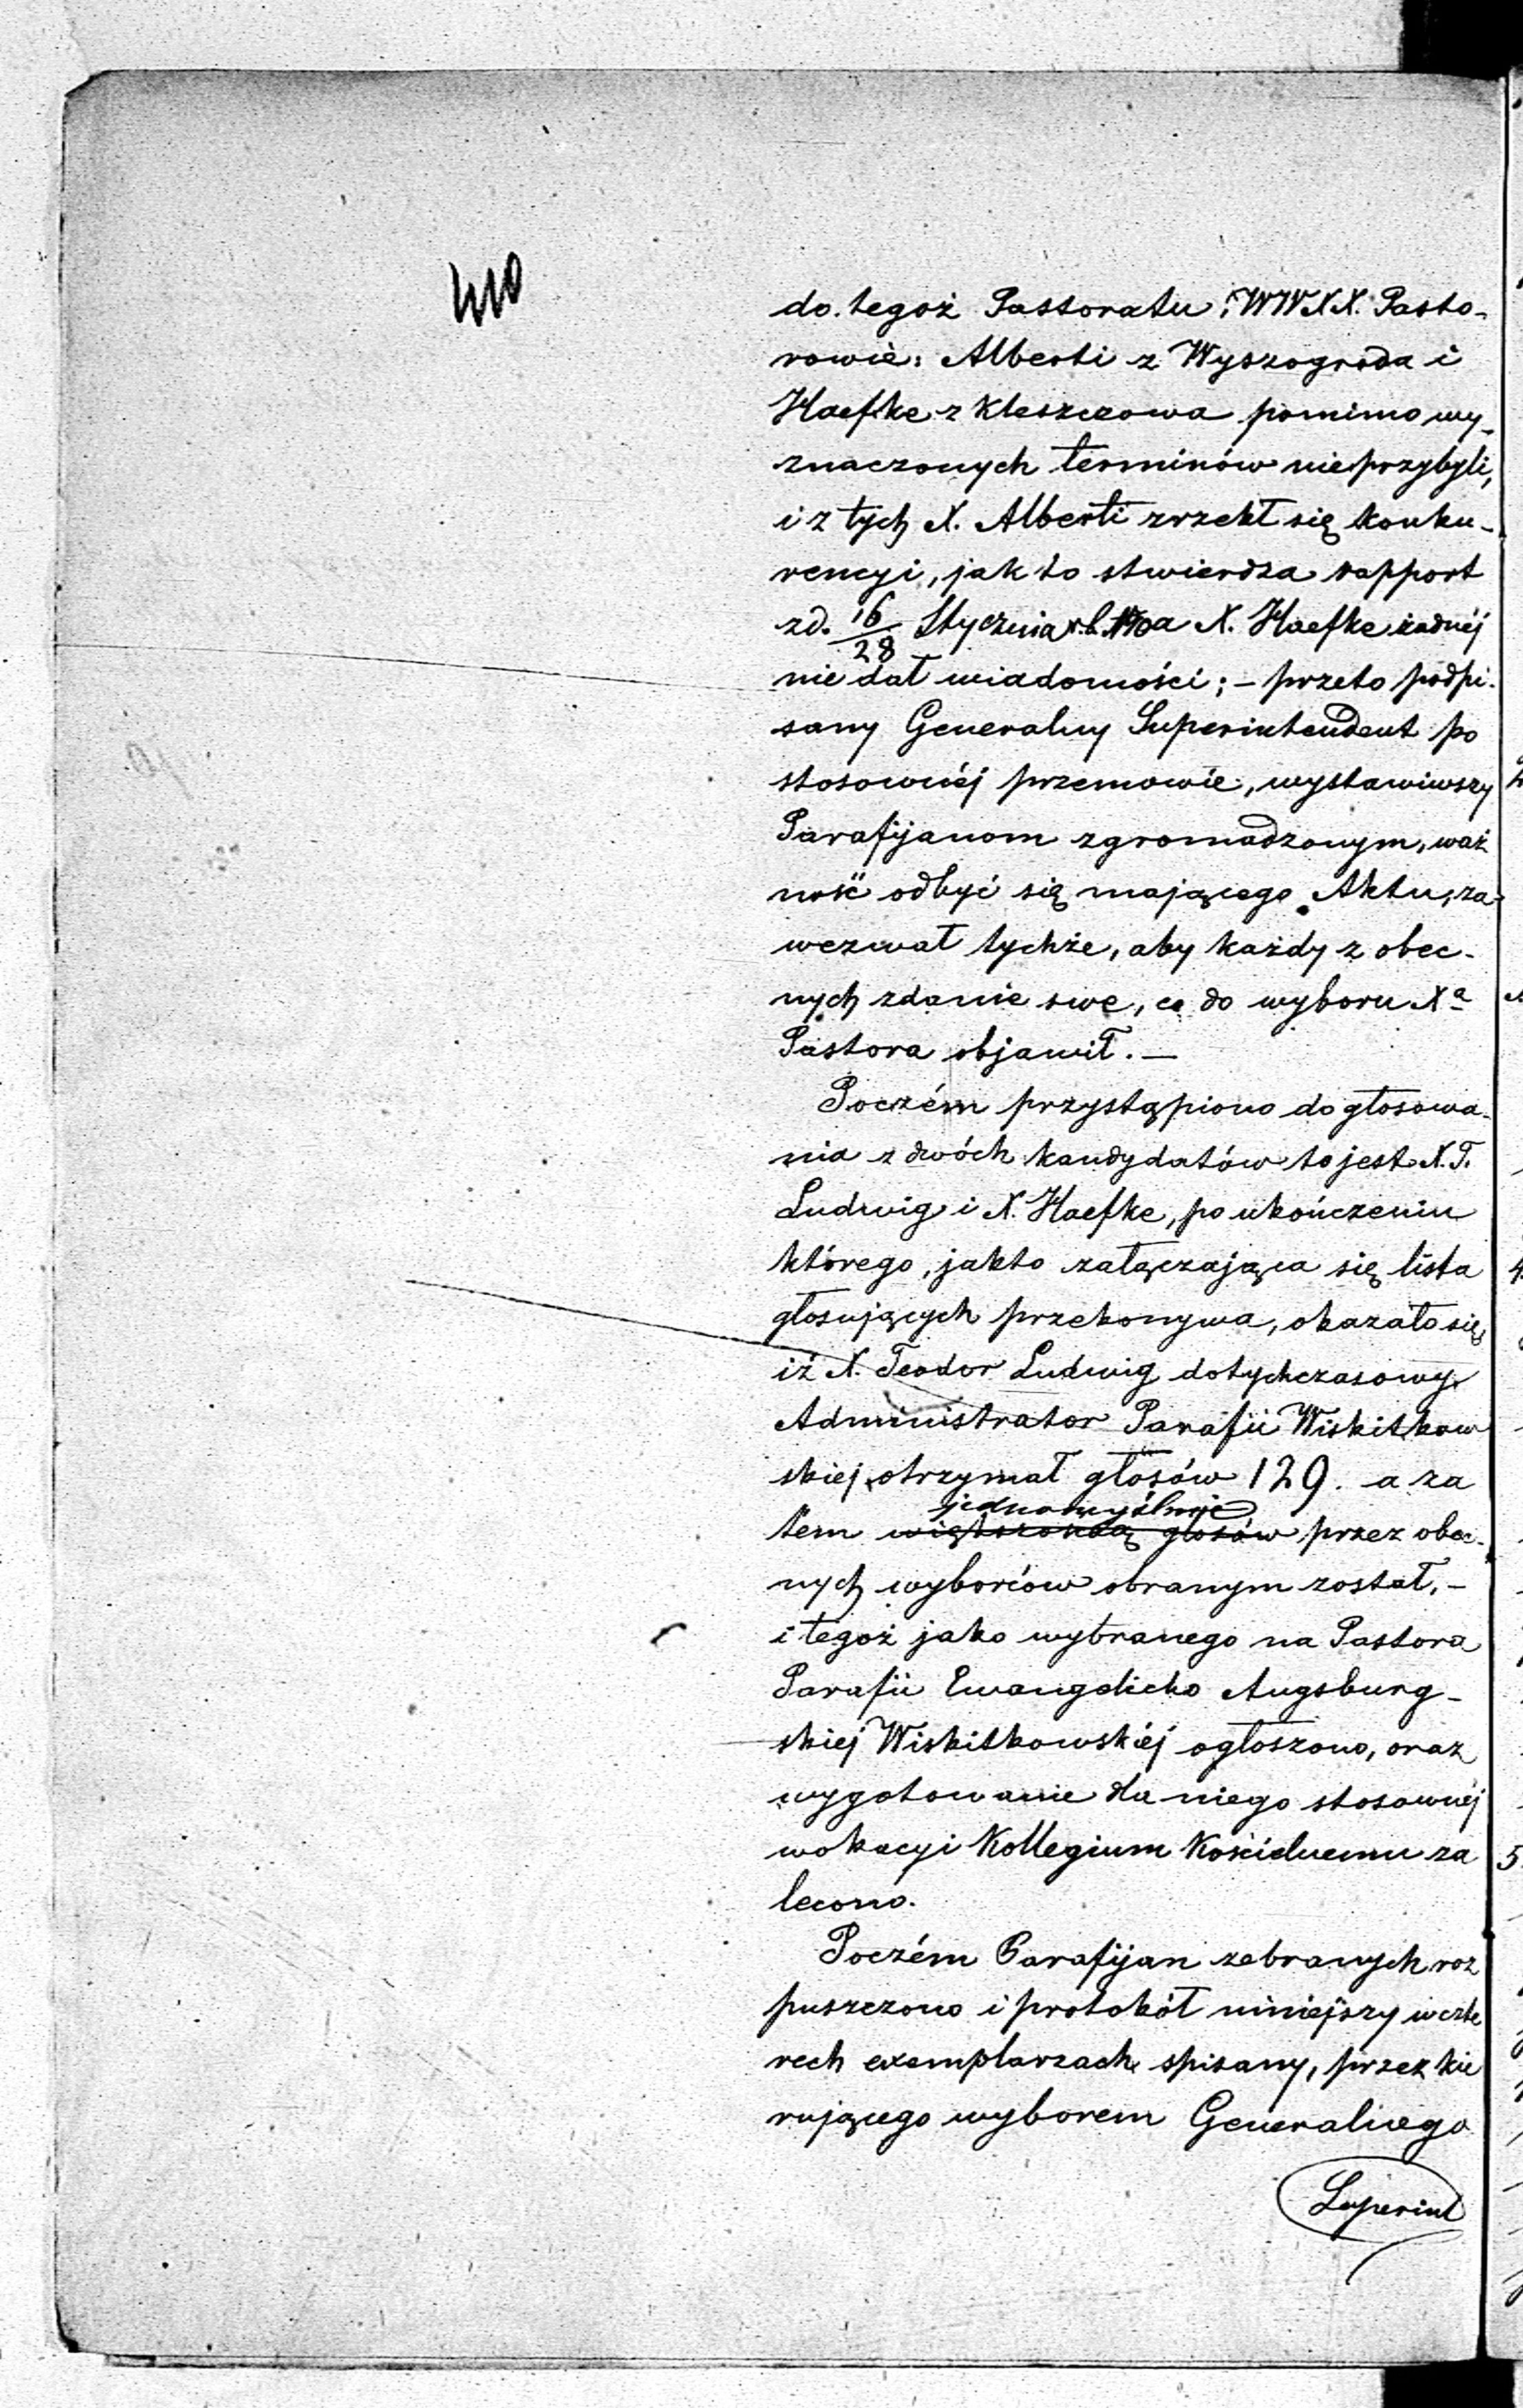 410
do tegoż Pastoratu, WWXX. Pasto-
rowie: Alberti z Wyszogroda i
Haefke z Kleszczowa pomimo wy-
znaczonych terminów nieprzybyli,
i z tych X. Alberti zrzekł się konku-
rencyi, jak to stwierdza rapport
zd. 16/28 Stycznia r. b. a X. Haefke żadnéj
nie dał wiadomości; – przeto podpi-
sany Generalny Superintendent po
stosownéj przemowie, wystawiwszy
Parafijanom zgromadzonym, waż
ność odbyć się mającego Aktu, za-
wezwał tychże, aby każdy z obec-
nych zdanie swe, co do wyboru Xa
Pastora objawił. –
Poczém przystąpiono do głosowa-
nia z dwóch kandydatów to jest X. T.
Ludwig i X. Haefke, po ukończeniu
którego, jakto załączająca się lista
głosujących przekonywa, okazało się
iż X. Teodor Ludwig dotychczasowy
Administrator Parafii Wiskitkow
skiej otrzymał głosów 129. a za
jednomyślnie
tem większością głosów przez obec-
nych wyborców obranym został, –
i tegoż jako wybranego na Pastora
Parafii Ewangelicko Augsburg-
skiej Wiskitkowskiéj ogłoszono, oraz
wygotowanie dla niego stosownéj
wokacyi Kollegium Kościelnemu za
lecono.
Poczém Parafijan zebranych roz
puszczono i protokół niniejszy w czte
rech exemplarzach spisany, przez kie
rującego wyborem Generalnego
Superint